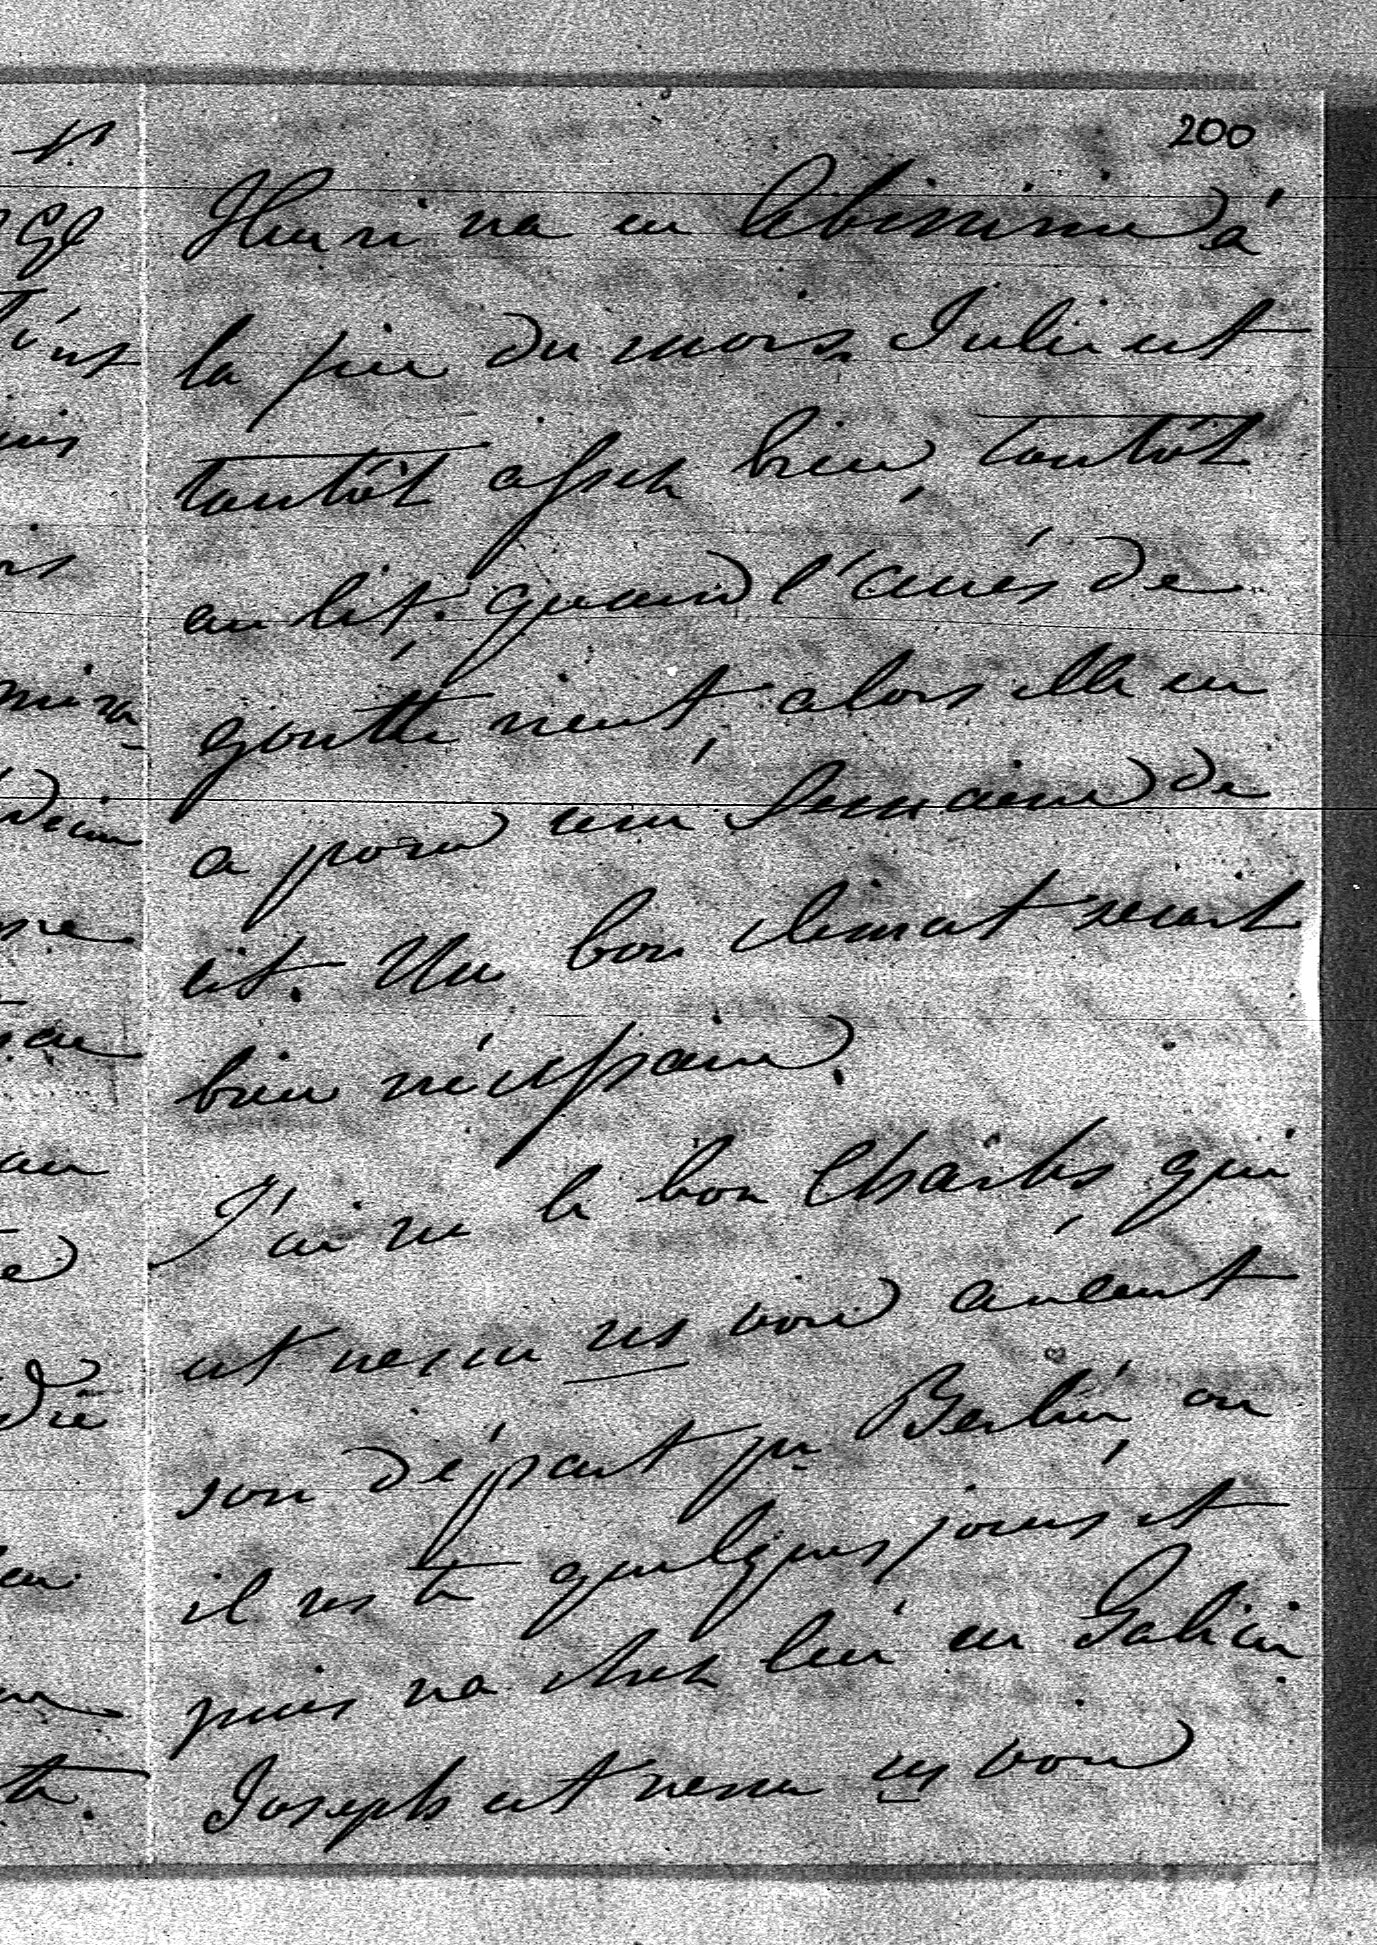 200
Henri va en Abissinie à
la fin du mois, Julie est
tantôt assez bien, tantôt
au lit. quand l'accès de
goutte vient, alors elle en
a pour une semaine de
lit. Un bon climat serait
bien nécessaire.
J'ai vu le bon Charles, qui
est venu ns voir avant
son départ pr Berlin, ou
il reste quelques jours et
puis va chez lui en Galicie.
Joseph est venu ns voir